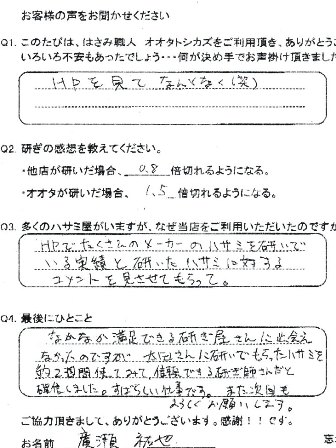 お客様の声をお聞かせください
Q1. このたびは、はさみ職人 オオタトシカズをご利用頂き、ありがとうご
いろいろ不安もあったでしょう・・・何が決め手でお声掛け頂きました
HPを見て なんとなく(笑)
Q2. 研ぎの感想を教えてください。
・他店が研いだ場合、 0.8 倍切れるようになる。
・オオタが研いだ場合、 1.5 倍切れるようになる。
Q3. 多くのハサミ屋がいますが、なぜ当店をご利用いただいたのですか
HPでたくさんのメーカーのハサミを研いで
いる実績と研いだハサミに対する
コメントを見させてもらって。
Q4. 最後にひとこと
なかなか満足できる研ぎ屋さんに出会え
なかったのですが 太田さんに研いでもらったハサミを
約2週間使ってみて、信頼できる研ぎ師さんだと
確信しました。すばらしい仕事です。また次回も
よろしくお願いします。
ご協力頂きまして、ありがとうございます。感謝!!です。
お名前 廣瀬